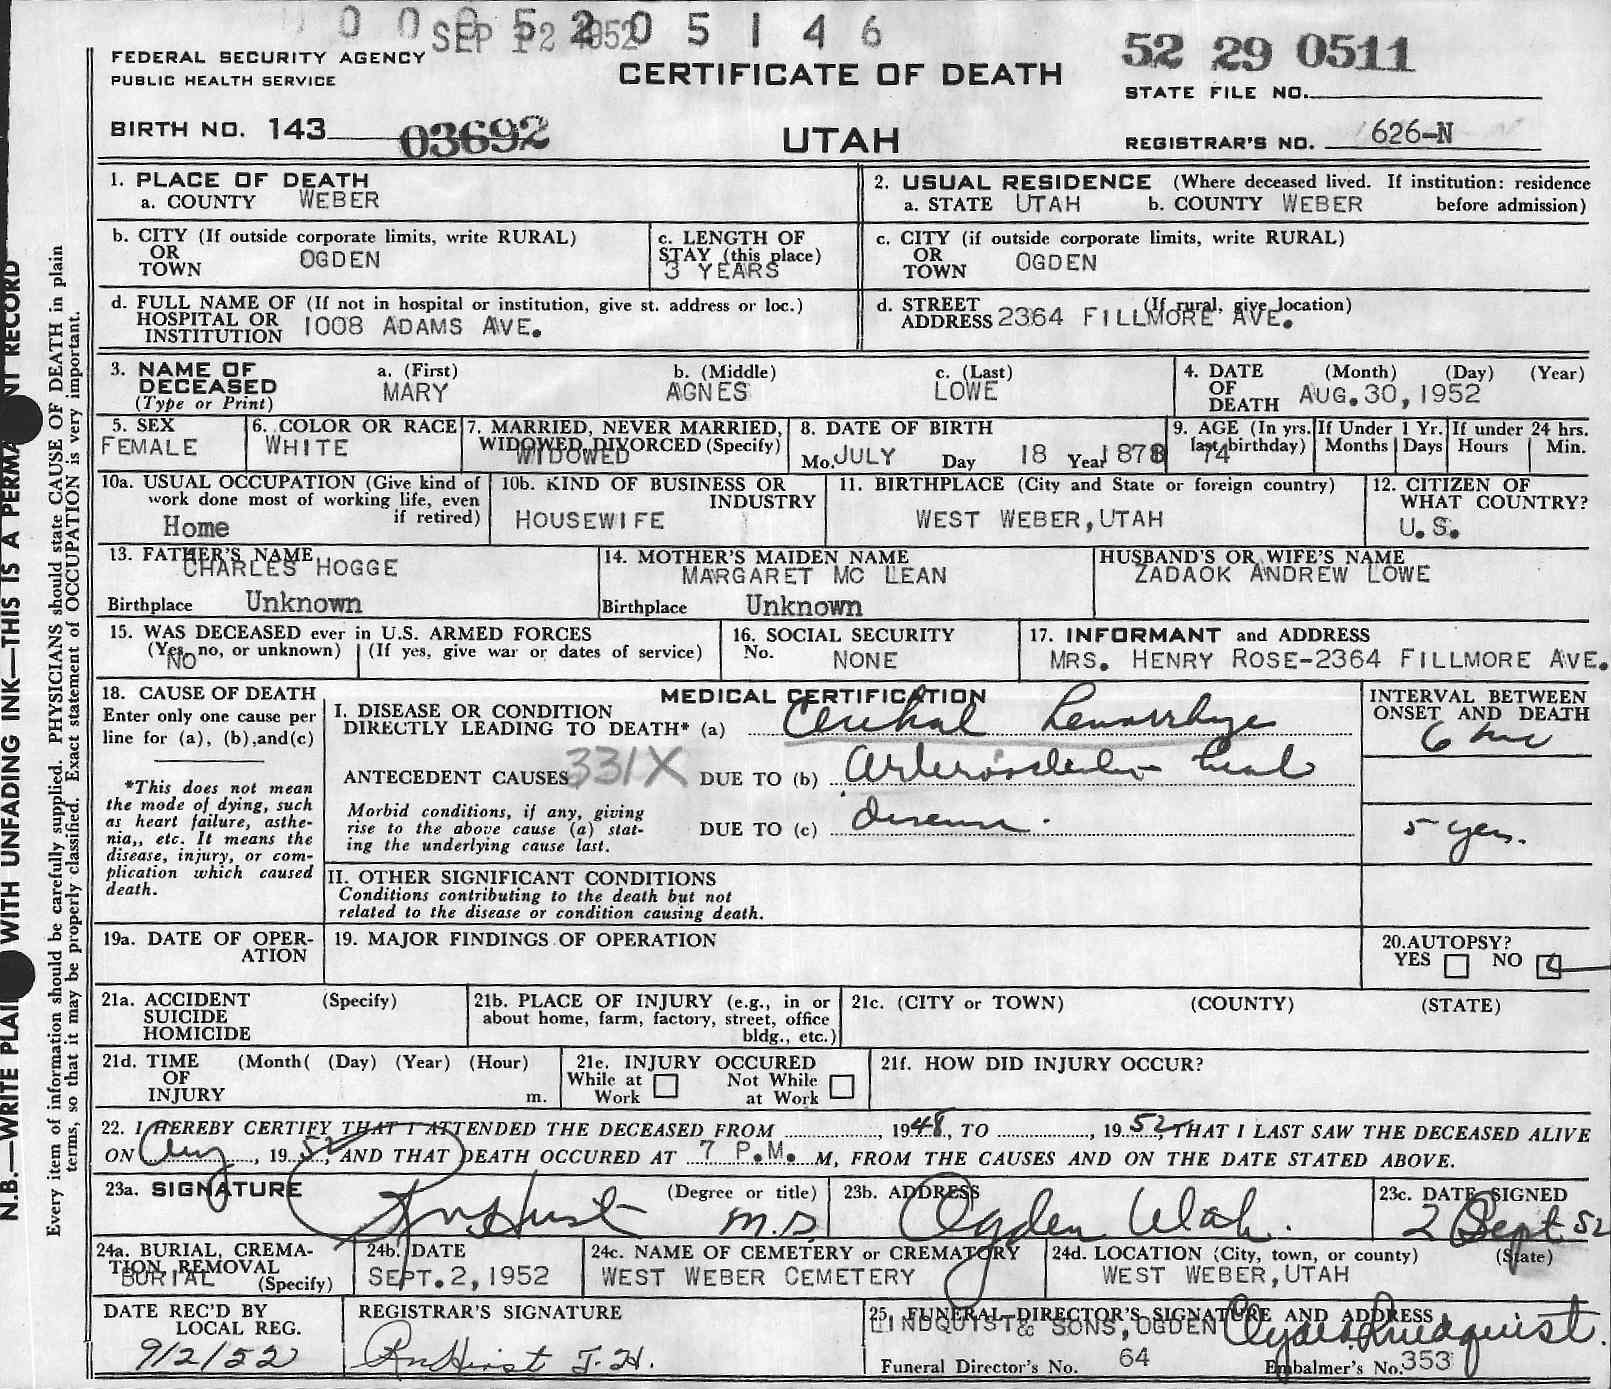 SEP 12 1952 0 5 1 4 6
FEDERAL SECURITY AGENCY
PUBLIC HEALTH SERVICE
CERTIFICATE OF DEATH
52 29 0511
STATE FILE NO.
BIRTH NO. 143 03692
UTAH
REGISTRAR'S NO. 626-N
1. PLACE OF DEATH
a. COUNTY WEBER
2. USUAL RESIDENCE (Where deceased lived. If institution: residence
a. STATE UTAH b. COUNTY WEBER before admission)
b. CITY (If outside corporate limits, write RURAL)
OR
TOWN OGDEN
c. LENGTH OF
STAY (this place)
3 YEARS
c. CITY (if outside corporate limits, write RURAL)
OR
TOWN OGDEN
d. FULL NAME OF (If not in hospital or institution, give st. address or loc.)
HOSPITAL OR
INSTITUTION 1008 ADAMS AVE.
d. STREET (If rural, give location)
ADDRESS 2364 FILLMORE AVE.
3. NAME OF
DECEASED
(Type or Print)
a. (First) b. (Middle) c. (Last)
MARY AGNES LOWE
4. DATE (Month) (Day) (Year)
OF
DEATH AUG.30,1952
5. SEX
FEMALE
6. COLOR OR RACE
WHITE
7. MARRIED, NEVER MARRIED,
WIDOWED, DIVORCED (Specify)
WIDOWED
8. DATE OF BIRTH
Mo. JULY Day 18 Year 1878
9. AGE (In yrs.
last birthday)
74
If Under 1 Yr.
Months Days
If under 24 hrs.
Hours Min.
10a. USUAL OCCUPATION (Give kind of
work done most of working life, even
if retired)
Home
10b. KIND OF BUSINESS OR
INDUSTRY
HOUSEWIFE
11. BIRTHPLACE (City and State or foreign country)
WEST WEBER, UTAH
12. CITIZEN OF
WHAT COUNTRY?
U.S.
13. FATHER'S NAME
CHARLES HOGGE
Birthplace Unknown
14. MOTHER'S MAIDEN NAME
MARGARET MC LEAN
Birthplace Unknown
HUSBAND'S OR WIFE'S NAME
ZADAOK ANDREW LOWE
15. WAS DECEASED ever in U.S. ARMED FORCES
(Yes, no, or unknown) (If yes, give war or dates of service)
NO
16. SOCIAL SECURITY
No. NONE
17. INFORMANT and ADDRESS
MRS. HENRY ROSE-2364 FILLMORE AVE.
18. CAUSE OF DEATH
Enter only one cause per
line for (a), (b),and(c)
*This does not mean
the mode of dying, such
as heart failure, asthe-
nia,, etc. It means the
disease, injury, or com-
plication which caused
death.
MEDICAL CERTIFICATION
I. DISEASE OR CONDITION
DIRECTLY LEADING TO DEATH* (a) Cerebral Hemorrhage
ANTECEDENT CAUSES 331X DUE TO (b) arteriosclerotic heart
Morbid conditions, if any, giving
rise to the above cause (a) stat-
ing the underlying cause last.
DUE TO (c) disease.
INTERVAL BETWEEN
ONSET AND DEATH
6 hrs
5 yrs.
II. OTHER SIGNIFICANT CONDITIONS
Conditions contributing to the death but not
related to the disease or condition causing death.
19a. DATE OF OPER-
ATION
19. MAJOR FINDINGS OF OPERATION
20.AUTOPSY?
YES NO
21a. ACCIDENT (Specify)
SUICIDE
HOMICIDE
21b. PLACE OF INJURY (e.g., in or
about home, farm, factory, street, office
bldg., etc.)
21c. (CITY or TOWN) (COUNTY) (STATE)
21d. TIME (Month( (Day) (Year) (Hour)
OF
INJURY m.
21e. INJURY OCCURED
While at Not While
Work at Work
21f. HOW DID INJURY OCCUR?
22. I HEREBY CERTIFY THAT I ATTENDED THE DECEASED FROM , 1948, TO , 1952, THAT I LAST SAW THE DECEASED ALIVE
ON Aug , 1952, AND THAT DEATH OCCURED AT 7 P.M. M, FROM THE CAUSES AND ON THE DATE STATED ABOVE.
23a. SIGNATURE (Degree or title)
M.D.
23b. ADDRESS
Ogden Utah.
23c. DATE SIGNED
2 Sept 52
24a. BURIAL, CREMA-
TION, REMOVAL
(Specify)
BURIAL
24b. DATE
SEPT.2,1952
24c. NAME OF CEMETERY OR CREMATORY
WEST WEBER CEMETERY
24d. LOCATION (City, town, or county) (State)
WEST WEBER, UTAH
DATE REC'D BY
LOCAL REG.
9/2/52
REGISTRAR'S SIGNATURE
25. FUNERAL DIRECTOR'S SIGNATURE AND ADDRESS
LINDQUIST& SONS, OGDEN Clyde Lindquist.
Funeral Director's No. 64 Embalmer's No. 353
N.B.—WRITE PLAI WITH UNFADING INK—THIS IS A PERMA NT RECORD
Every item of information should be carefully supplied. PHYSICIANS should state CAUSE OF DEATH in plain
terms, so that it may be properly classified. Exact statement of OCCUPATION is very important.